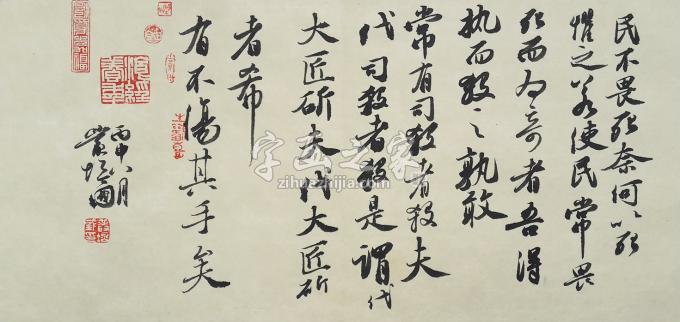 民不畏死奈何以死
懼之若使民常畏
死而为奇者吾得
执而殺之孰敢
常有司殺者殺夫
代司殺者殺是謂代
大匠斫夫代大匠斫
者希
有不傷其手矣
丙申八月
字画之家
zihuazhijia.com